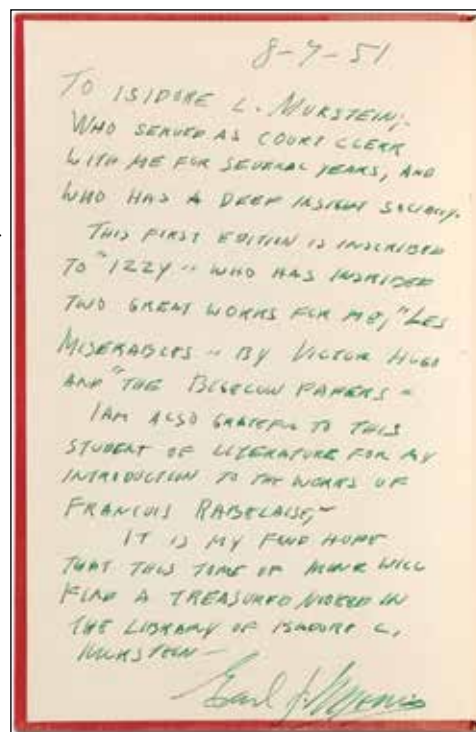 8-7-51
TO ISIDORE L. MURSTEIN;-
WHO SERVED AS COURT CLERK
WITH ME FOR SEVERAL YEARS, AND
WHO HAS A DEEP INSIGHT SOCIETY.
THIS FIRST EDITION IS INSCRIBED
TO "IZZY" - WHO HAS INSCRIBED
TWO GREAT WORKS FOR ME, "LES
MISERABLES - BY VICTOR HUGO
AND "THE BIGELOW PAPERS -
I AM ALSO GRATEFUL TO THIS
STUDENT OF LITERATURE FOR MY
INTRODUCTION TO THE WORKS OF
FRANCOIS RABELAISE,-
IT IS MY FOND HOPE
THAT THIS TOME OF MINE WILL
FIND A TREASURED IN
THE LIBRARY OF ISADORE L.
MURSTEIN -
Earl J.